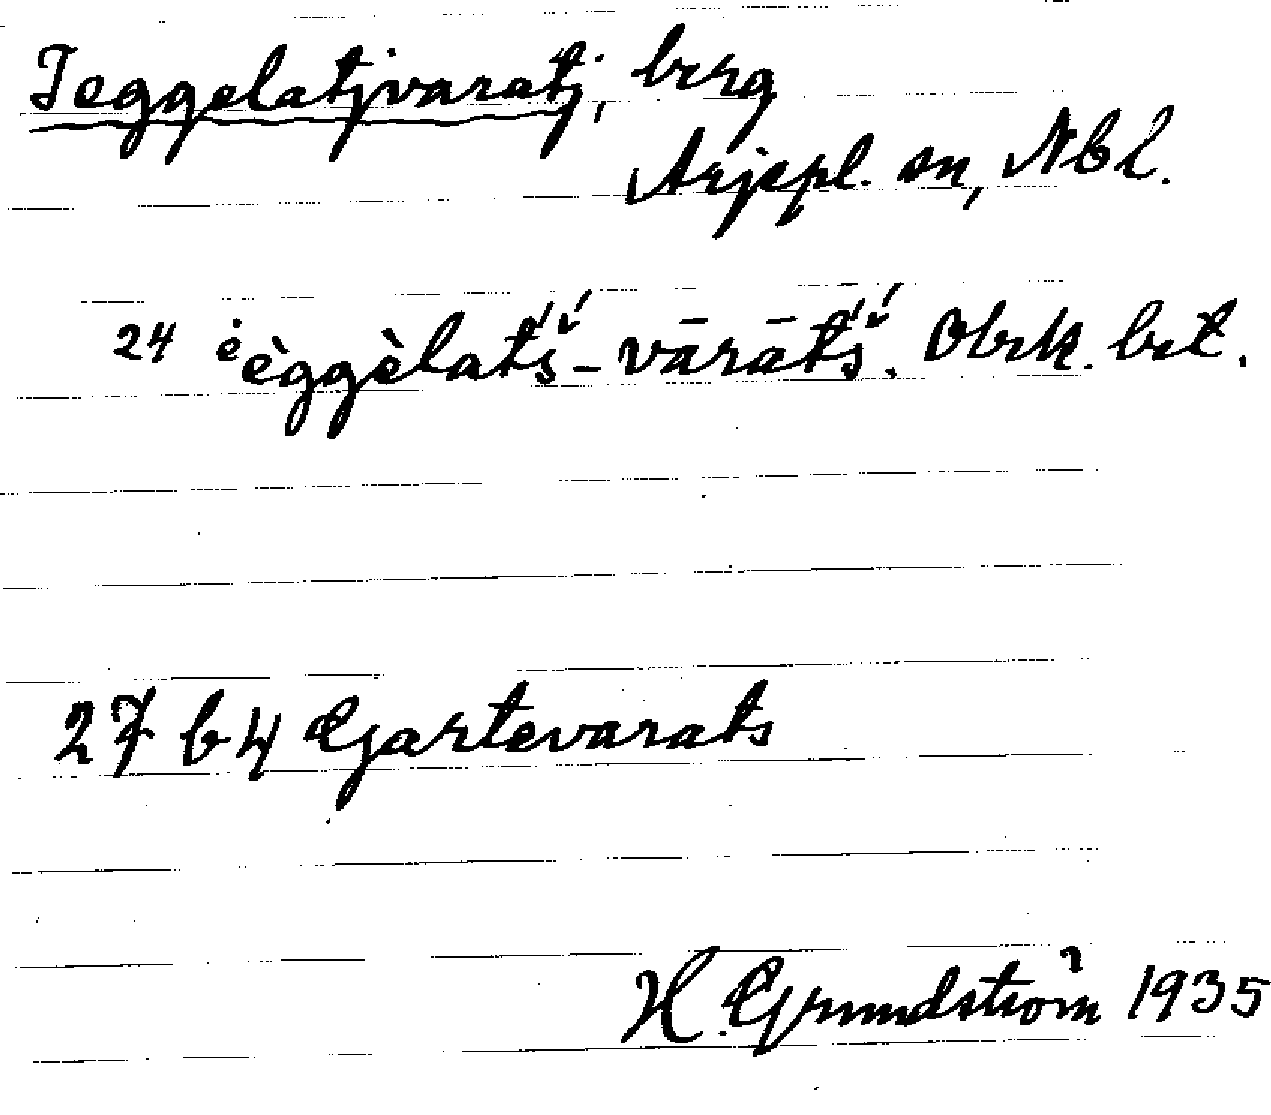 Jeggelatjvaratj, berg
Arjepl. sn, Nbl.
24 ė̀eggèlatś̌-vārātś̌. Obrk. bet.
27 b 4 Gjartevarats
H. Grundström 1935